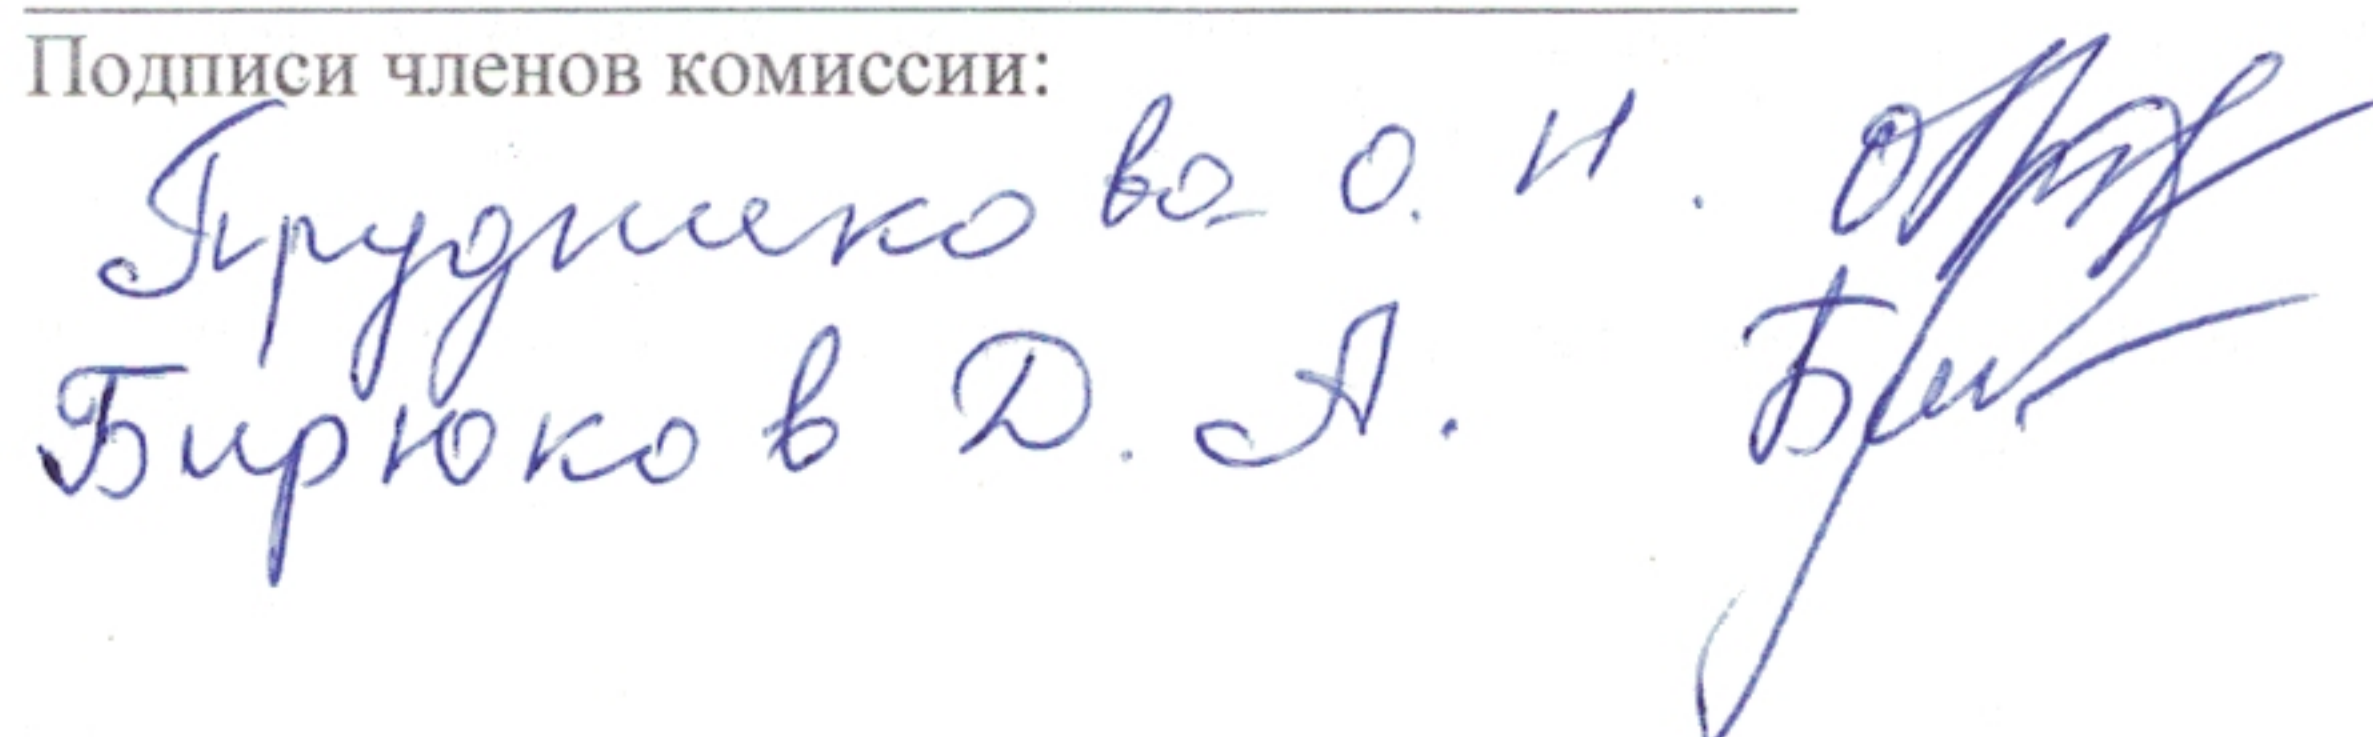 Подписи членов комиссии:
Прудникова О. Н.
Бирюков Д. А.